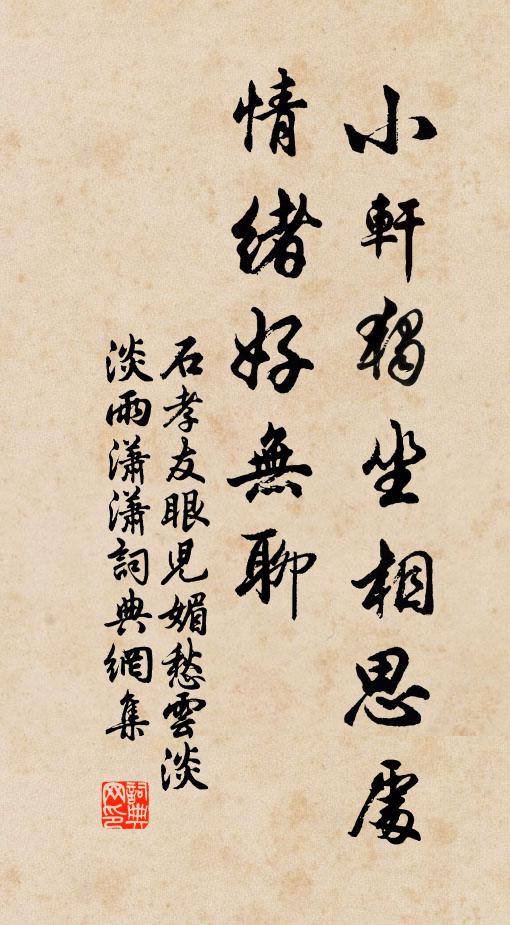 小軒獨坐相思處
情緒好無聊
石孝友眼兒媚愁雲淡
淡雨瀟瀟詞典網集
詞典
网印